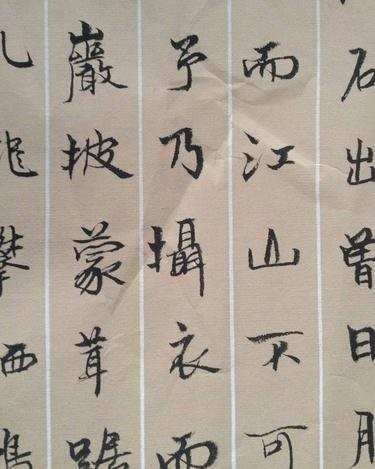 石出曾日月
而江山不可
予乃攝衣而
巖披蒙茸踞